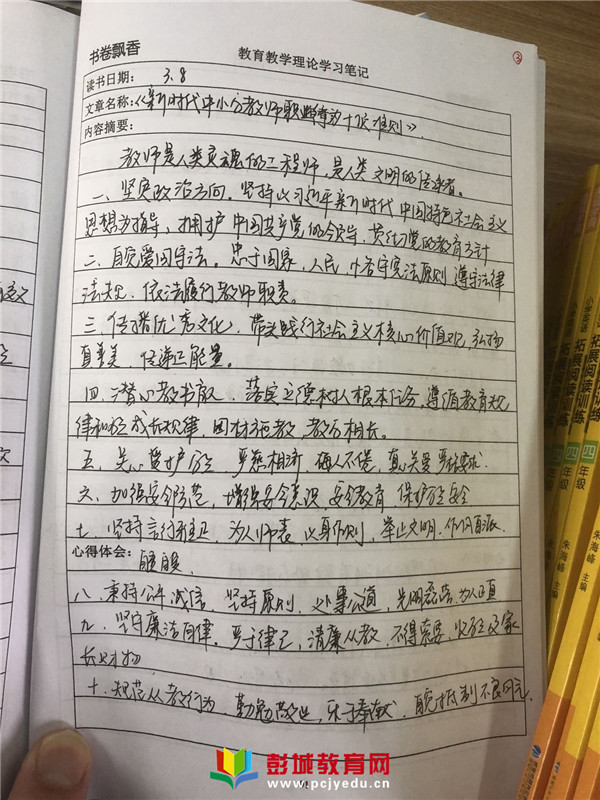 书卷飘香 教育教学理论学习笔记 ③
读书日期: 3.8
文章名称:《新时代中小学教师职业行为十项准则》.
内容摘要:
教师是人类灵魂的工程师,是人类文明的传承者。
一、坚定政治方向。坚持以习近平新时代中国特色社会主义
思想为指导、拥护中国共产党的领导,贯彻党的教育方针
二、自觉爱国守法。忠于国家,人民,恪守宪法原则 遵守法律
法规、依法履行教师职责。
三、传播优秀文化、带头践行社会主义核心价值观,弘扬
真善美,传递正能量。
四、潜心教书育人、落实立德树人根本任务,遵循教育规
律和 成长规律,因材施教,教学相长。
五、关心爱护学生 严慈相济 诲人不倦,真心关爱 严格要求
六、加强安全防范,增强安全意识 安全教育,保护学生安全
七、坚持言行雅正,为人师表,以身作则,举止文明,作风正派
心得体会: 自重自爱.
八、秉持公平诚信,坚持原则,处事公道,光明磊落,为人正直
九、坚守廉洁自律,严于律己,清廉从教,不得索要,收学生及家
长财物
十、规范从教行为 勤勉敬业,乐于奉献,自觉抵制不良风气.
小学英语
拓展阅读训练
四年级
朱海峰 主编
彭城教育网
www.pcjyedu.cn